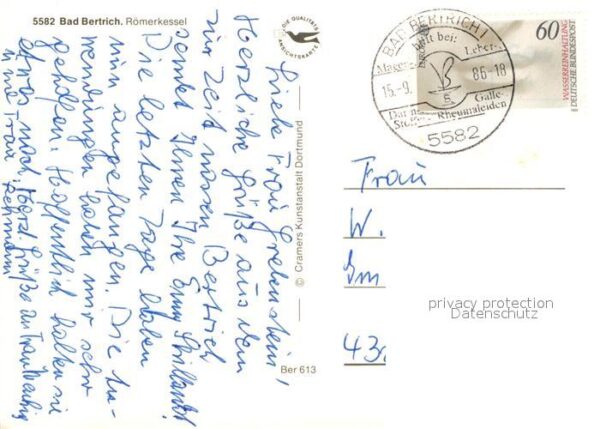 5582 Bad Bertrich. Römerkessel
DIE QUALITÄTS
ANSICHTSKARTE
© Cramers Kunstanstalt Dortmund
Ber 613
Liebe Frau
Herzliche Grüße aus dem
zur Zeit nassen Bertrich
sendet Ihnen Ihre
Die letzten Tage haben
nun angefangen. Die An-
wendungen haben mir sehr
geholfen. Hoffentlich halten sie
etwas nach. Herzl. Grüße an Frau
BAD BERTRICH
hilft bei:
Magen- Leber-
15.-9. 86-18
Darm- Galle-
Rheumaleiden
5582
60
WASSERREINHALTUNG
DEUTSCHE BUNDESPOST
Frau
W.
Im
43
privacy protection
Datenschutz